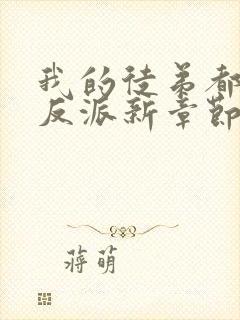 我的徒弟都
反派新章節
蒋萌